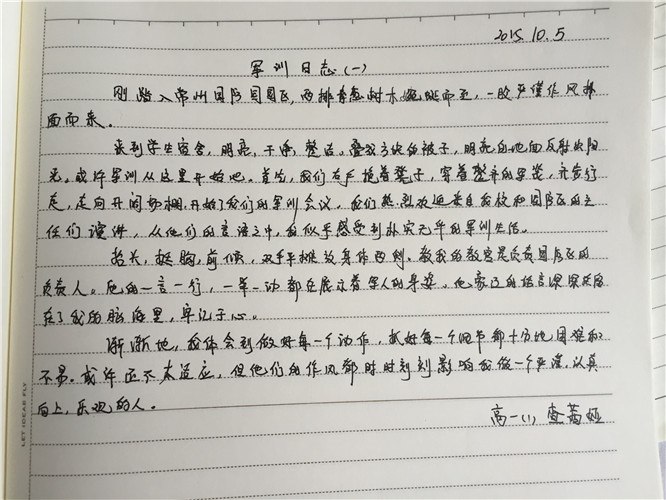 2015.10.5
军训日志(一)
刚踏入常州国防园园区,两排青葱树木婉蜒而至,一股严谨作风扑
面而来。
来到学生宿舍,明亮,干净,整洁。叠成方块的被子,明亮的地面反射出阳
光。或许军训从这里开始吧。首先,我们右手抱着凳子,穿着整齐的军装,齐步行
走,走向开阔,开始了我们的军训会议。我们热烈欢迎来自我校和国防园的主
任们演讲,从他们的言语之中,我似乎感受到的军训生活。
抬头,挺胸,前倾,双手平摊放身体两侧。教我的教官是负责国防园的
负责人。他的一言一行,一举一动都在展示着军人的身姿。他豪迈的语言深深烙
在了我的脑海里,牢记于心。
渐渐地,我体会到做好每一个动作,抓好每一个细节都十分地困难和
不易。或许还不太适应,但他们的作风都时时刻刻影响我做一个严谨,认真
向上,乐观的人。
高一(1) 查茜娅
LET IDEAS FLY